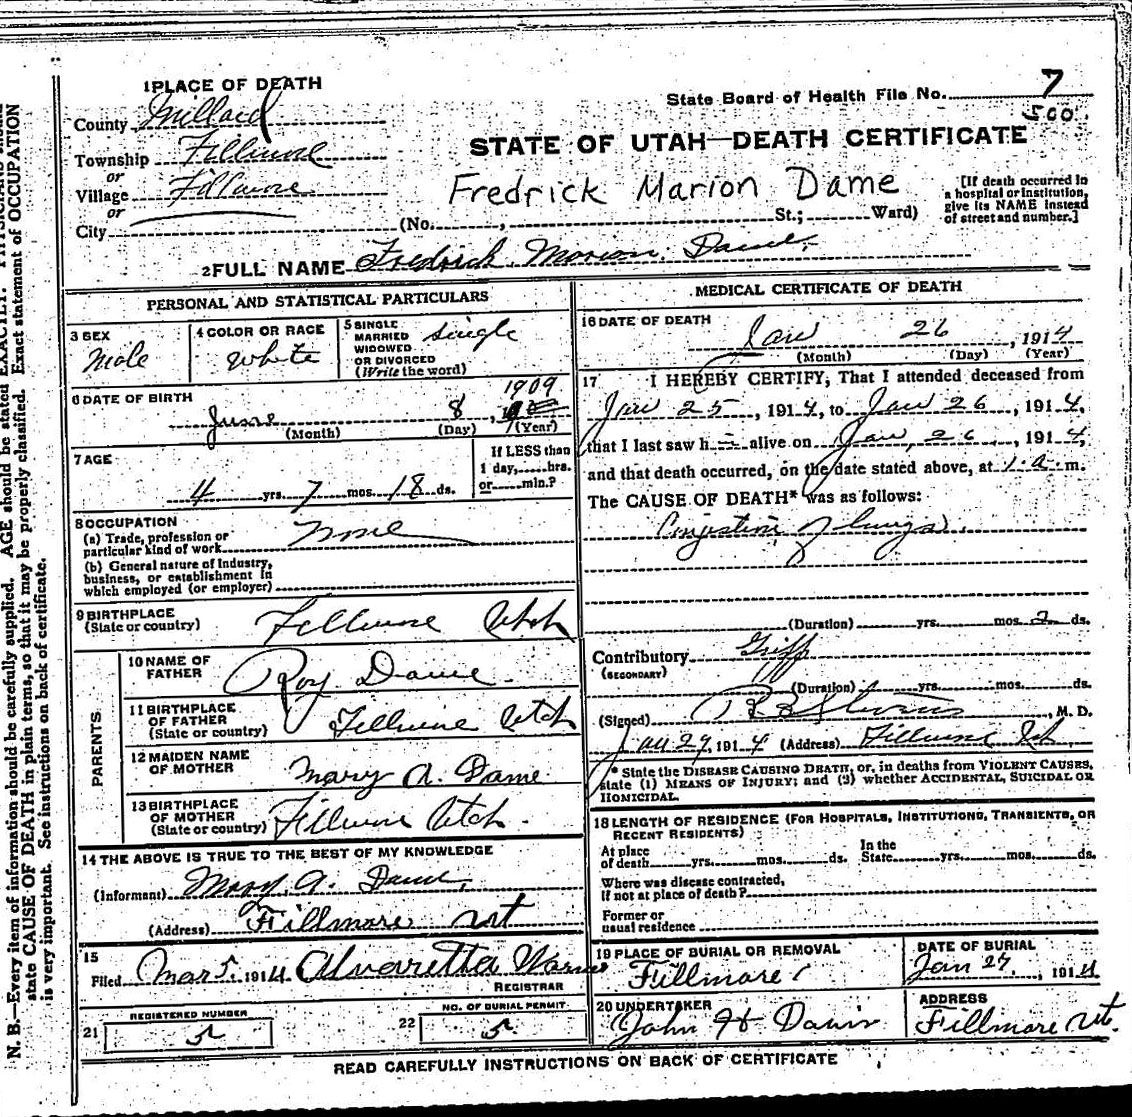 N. B.—Every item of information should be carefully supplied. AGE should be stated EXACTLY. PHYSICIANS
state CAUSE OF DEATH in plain terms, so that it may be properly classified. Exact statement of OCCUPATION
is very important. See instructions on back of certificate.
1 PLACE OF DEATH
County Millard
Township Fillmore
or
Village Fillmore
or
City
State Board of Health File No. 7
500
STATE OF UTAH—DEATH CERTIFICATE
Fredrick Marion Dame
[If death occurred in
a hospital or institution,
give its NAME instead
of street and number.]
(No. , St.; Ward)
2 FULL NAME Fredrick Marion Dame
PERSONAL AND STATISTICAL PARTICULARS
3 SEX
Male
4 COLOR OR RACE
White
5 SINGLE
MARRIED
WIDOWED
OR DIVORCED
(Write the word)
Single
6 DATE OF BIRTH
June 8, 1909
(Month) (Day) (Year)
7 AGE
4 yrs. 7 mos. 18 ds.
If LESS than
1 day, hrs.
or min.?
8 OCCUPATION
(a) Trade, profession or
particular kind of work None
(b) General nature of Industry,
business, or establishment in
which employed (or employer)
9 BIRTHPLACE
(State or country) Fillmore Utah
PARENTS
10 NAME OF
FATHER Roy Dame
11 BIRTHPLACE
OF FATHER
(State or country) Fillmore Utah
12 MAIDEN NAME
OF MOTHER Mary A. Dame
13 BIRTHPLACE
OF MOTHER
(State or country) Fillmore Utah
14 THE ABOVE IS TRUE TO THE BEST OF MY KNOWLEDGE
(Informant) Mary A. Dame
(Address) Fillmore Ut
15
Filed Mar 5, 1914 Alvaretta Warner
REGISTRAR
21
REGISTERED NUMBER
5
22
NO. OF BURIAL PERMIT
5
MEDICAL CERTIFICATE OF DEATH
16 DATE OF DEATH
Jan 26, 1914
(Month) (Day) (Year)
17 I HEREBY CERTIFY, That I attended deceased from
Jan 25, 1914, to Jan 26, 1914,
that I last saw h alive on Jan, 26, 1914,
and that death occurred, on the date stated above, at 1 a. m.
The CAUSE OF DEATH* was as follows:
Congestion of lungs
(Duration) yrs. mos. 2 ds.
Contributory Gripp
(SECONDARY)
(Duration) yrs. mos. ds.
(Signed) Stevens, M. D.
Jan 27, 1914 (Address) Fillmore Ut
* State the DISEASE CAUSING DEATH, or, in deaths from VIOLENT CAUSES,
state (1) MEANS OF INJURY; and (2) whether ACCIDENTAL, SUICIDAL OR
HOMICIDAL.
18 LENGTH OF RESIDENCE (FOR HOSPITALS, INSTITUTIONS, TRANSIENTS, OR
RECENT RESIDENTS)
At place
of death yrs. mos. ds.
In the
State yrs. mos. ds.
Where was disease contracted,
if not at place of death?
Former or
usual residence
19 PLACE OF BURIAL OR REMOVAL
Fillmore
DATE OF BURIAL
Jan 27, 1914
20 UNDERTAKER
John H Davis
ADDRESS
Fillmore Ut.
READ CAREFULLY INSTRUCTIONS ON BACK OF CERTIFICATE